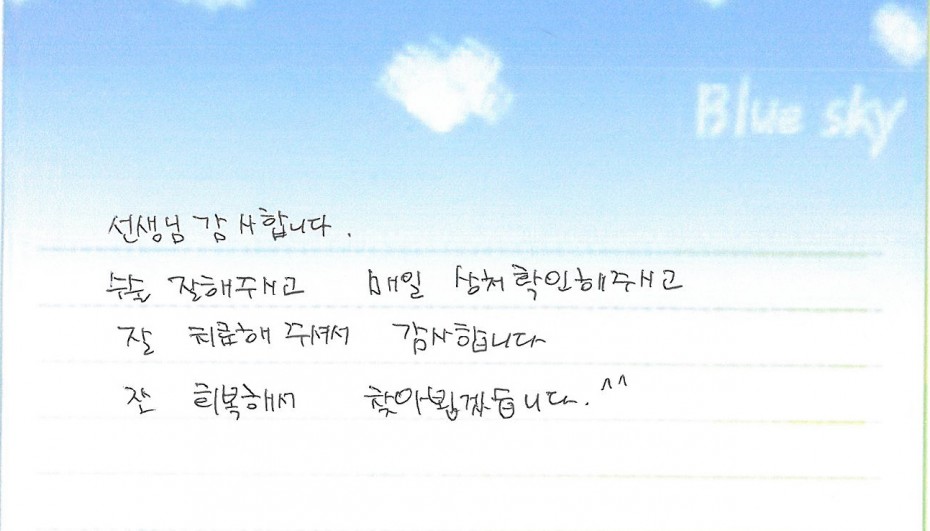 Blue sky
선생님 감사합니다.
수술 잘해주시고 매일 상처확인해주시고
잘 치료해 주셔서 감사합니다
잘 회복해서 찾아뵙겠습니다.^^